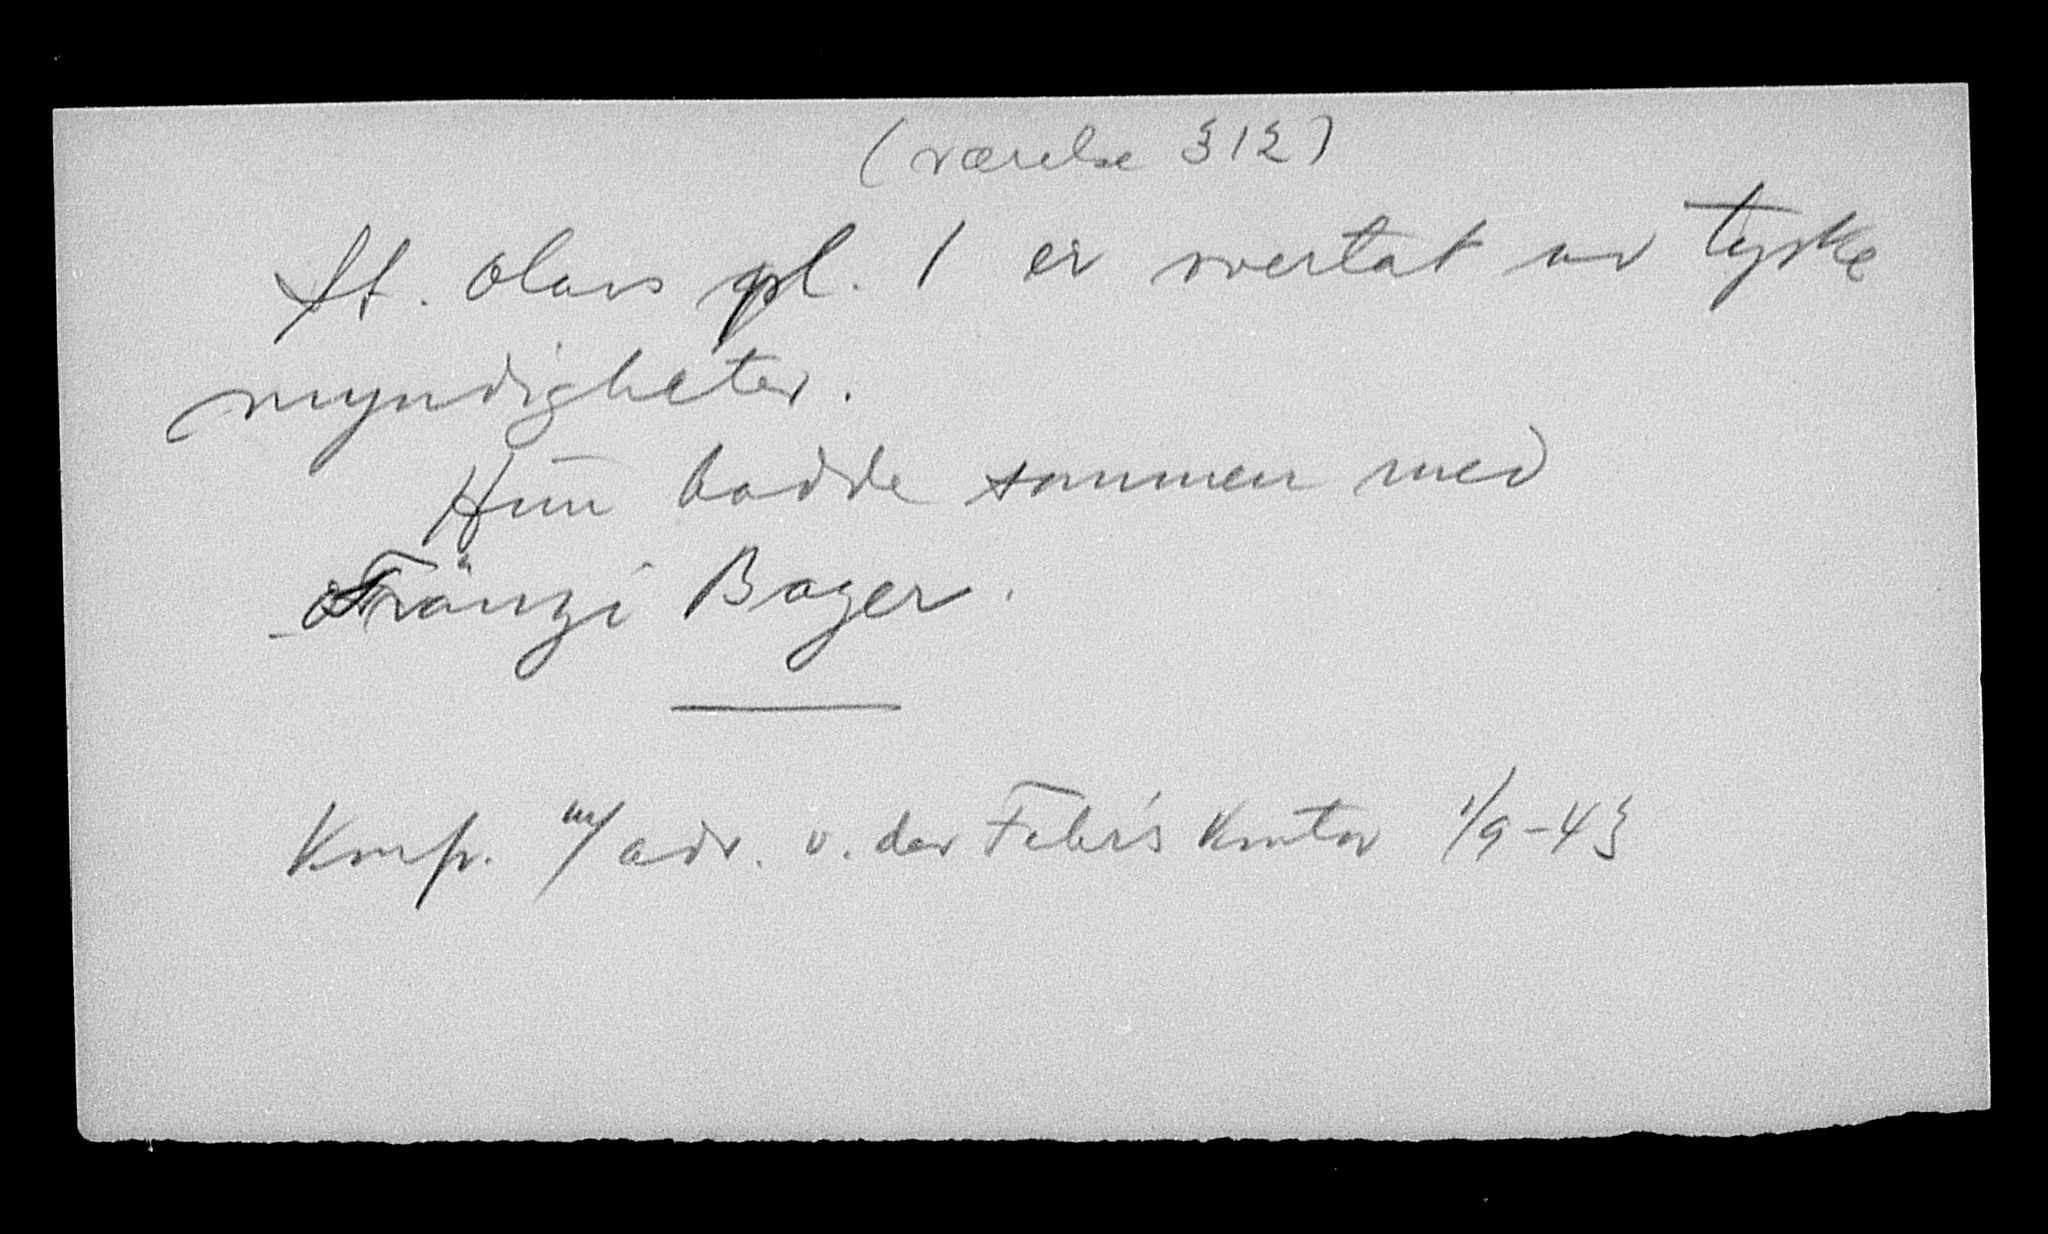 (værelse 312)
St. Olavs pl. 1 er overtat av tyske
myndigheter.
Hun bodde sammen med
Fränzi Bager.
Konf. m/ adv. v. der Fehr's kontor 1/9-43